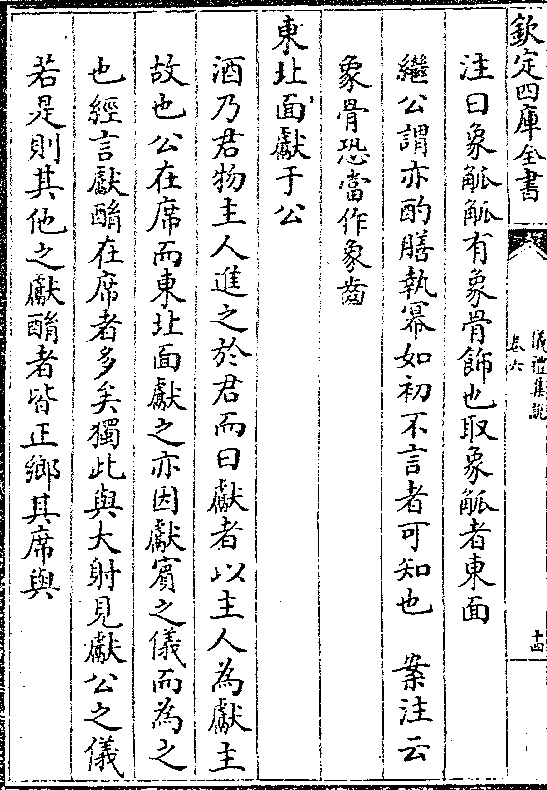 欽定四庫全書
儀禮集說
卷六
十四
注曰象觚觚有象骨飾也取象觚者東面
繼公謂亦酌膳執冪如初不言者可知也　案注云
象骨恐當作象齒
東北面獻于公
酒乃君物主人進之於君而曰獻者以主人為獻主
故也公在席而東北面獻之亦因獻賓之儀而為之
也經言獻酳在席者多矣獨此與大射見獻公之儀
若是則其他之獻酳者皆正鄉其席與